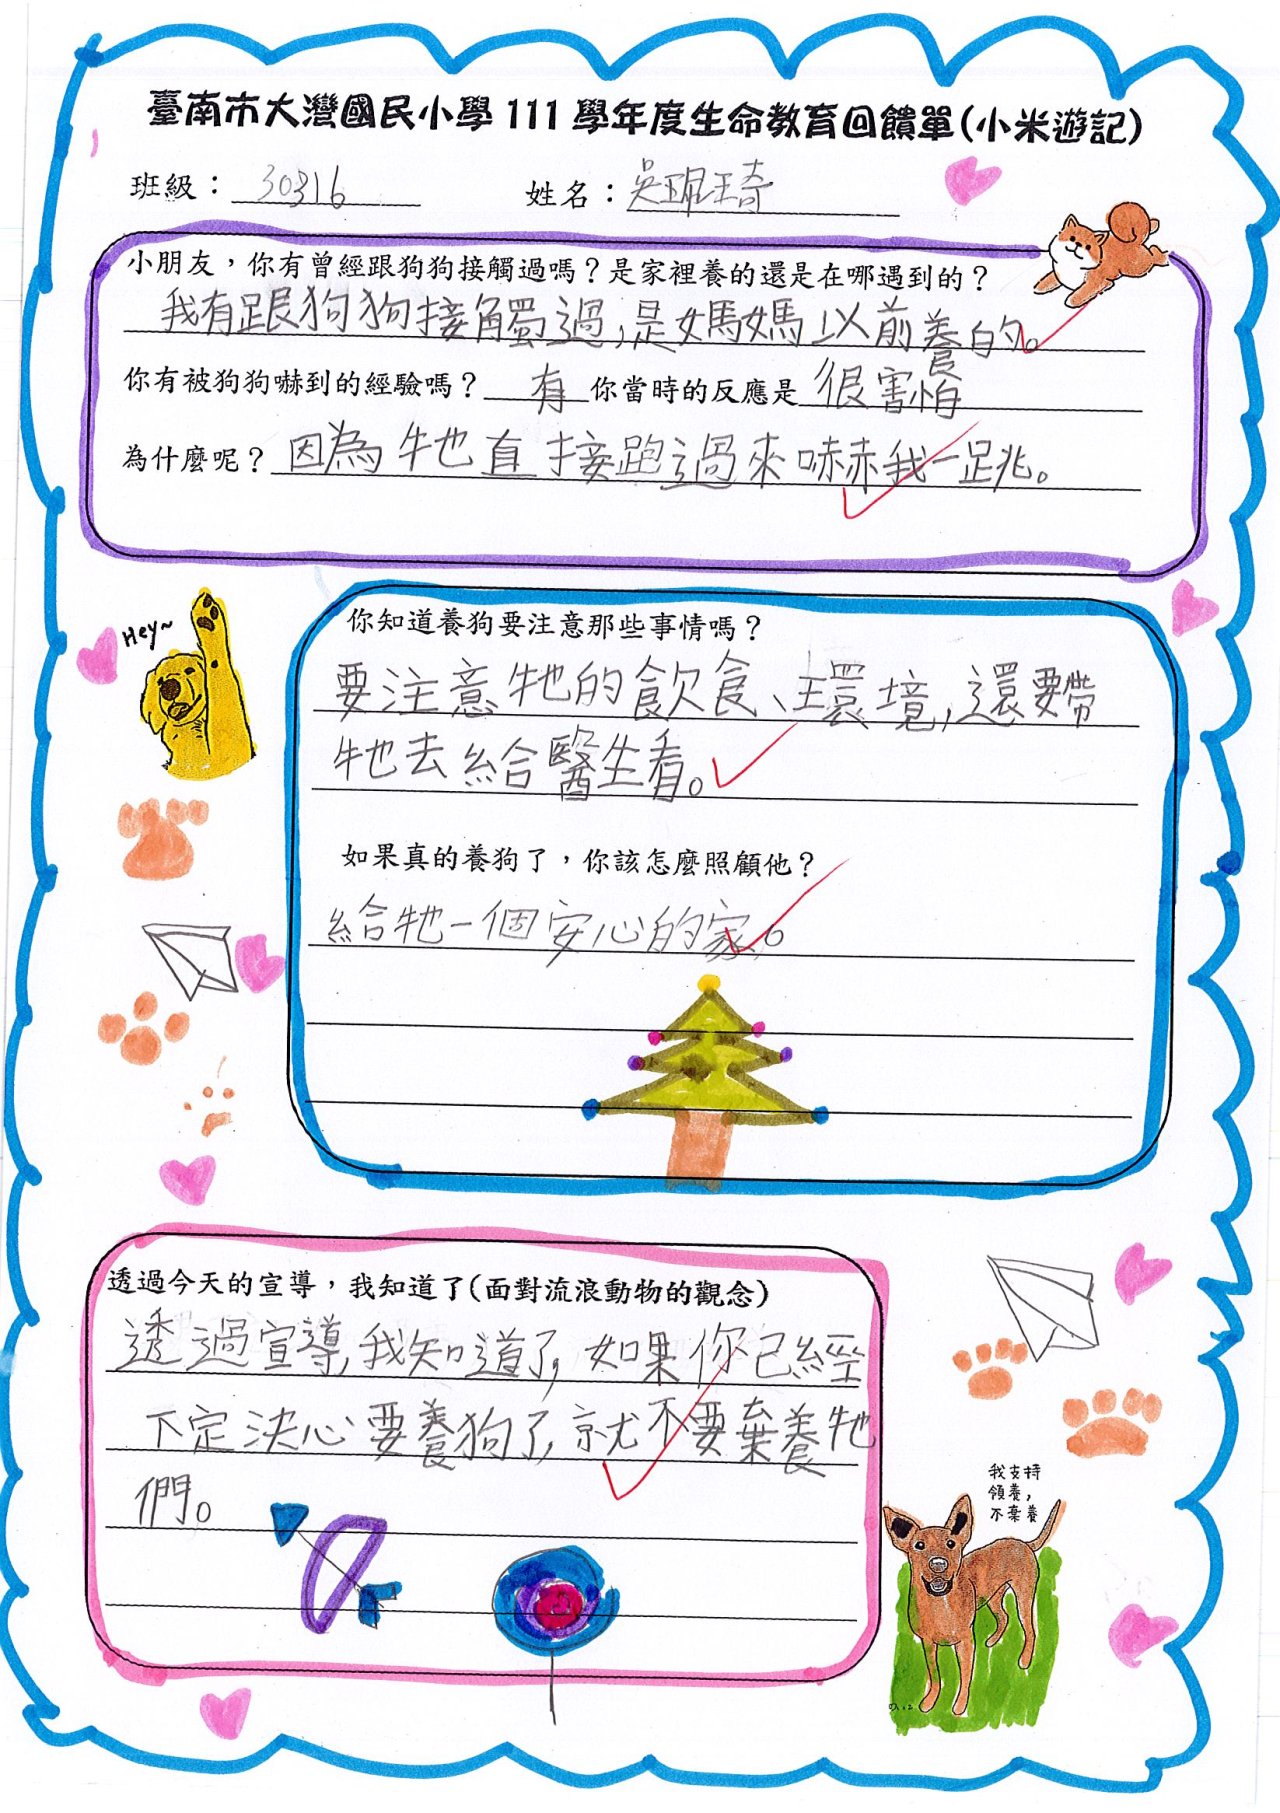 臺南市大灣國民小學 111 學年度生命教育回饋單(小米遊記)
班級：30316 姓名：吳珮琦
小朋友，你有曾經跟狗狗接觸過嗎？是家裡養的還是在哪遇到的？
我有跟狗狗接觸過,是媽媽以前養的。
你有被狗狗嚇到的經驗嗎？有 你當時的反應是 很害怕
為什麼呢？因為牠直接跑過來嚇我一跳。
Hey~
你知道養狗要注意那些事情嗎？
要注意牠的飲食、環境,還要帶
牠去給醫生看。
如果真的養狗了，你該怎麼照顧他？
給牠一個安心的家。
透過今天的宣導，我知道了(面對流浪動物的觀念)
透過宣導,我知道了,如果你已經
下定決心要養狗了,就不要棄養牠
們。
我支持
領養，
不棄養